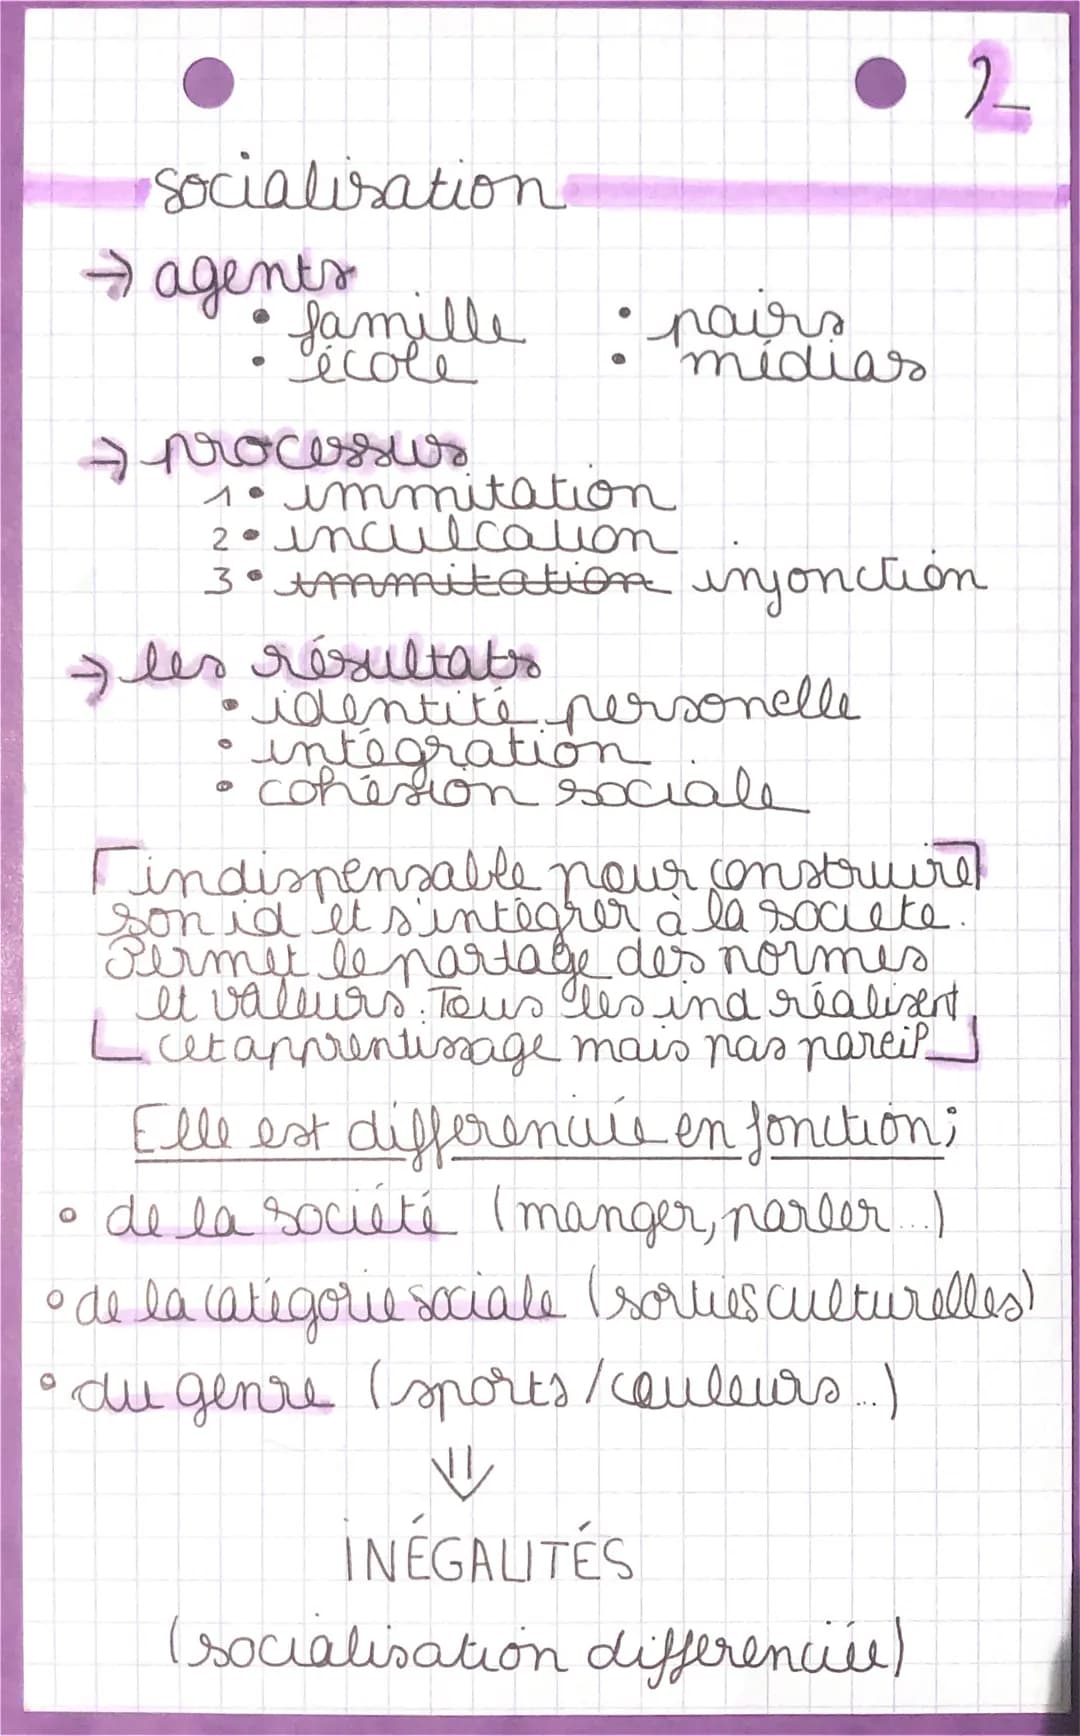 2
socialisation
→ agents
• famille • pairs
• école • médias
→ processus
1• immitation
2• inculcation
3• immitation injonction
→ les résultats
• identité personelle
• intégration
• cohésion sociale
indispensable pour construire
son id et s'intégrer à la société.
Permet le partage des normes
et valeurs. Tous les ind réalisent
cet apprentissage mais pas pareil
Elle est differenciée en fonction;
• de la société (manger, parler...)
• de la catégorie sociale (sorties culturelles)
• du genre (sports/couleurs...)
⇓
INÉGALITÉS
(socialisation differenciée)